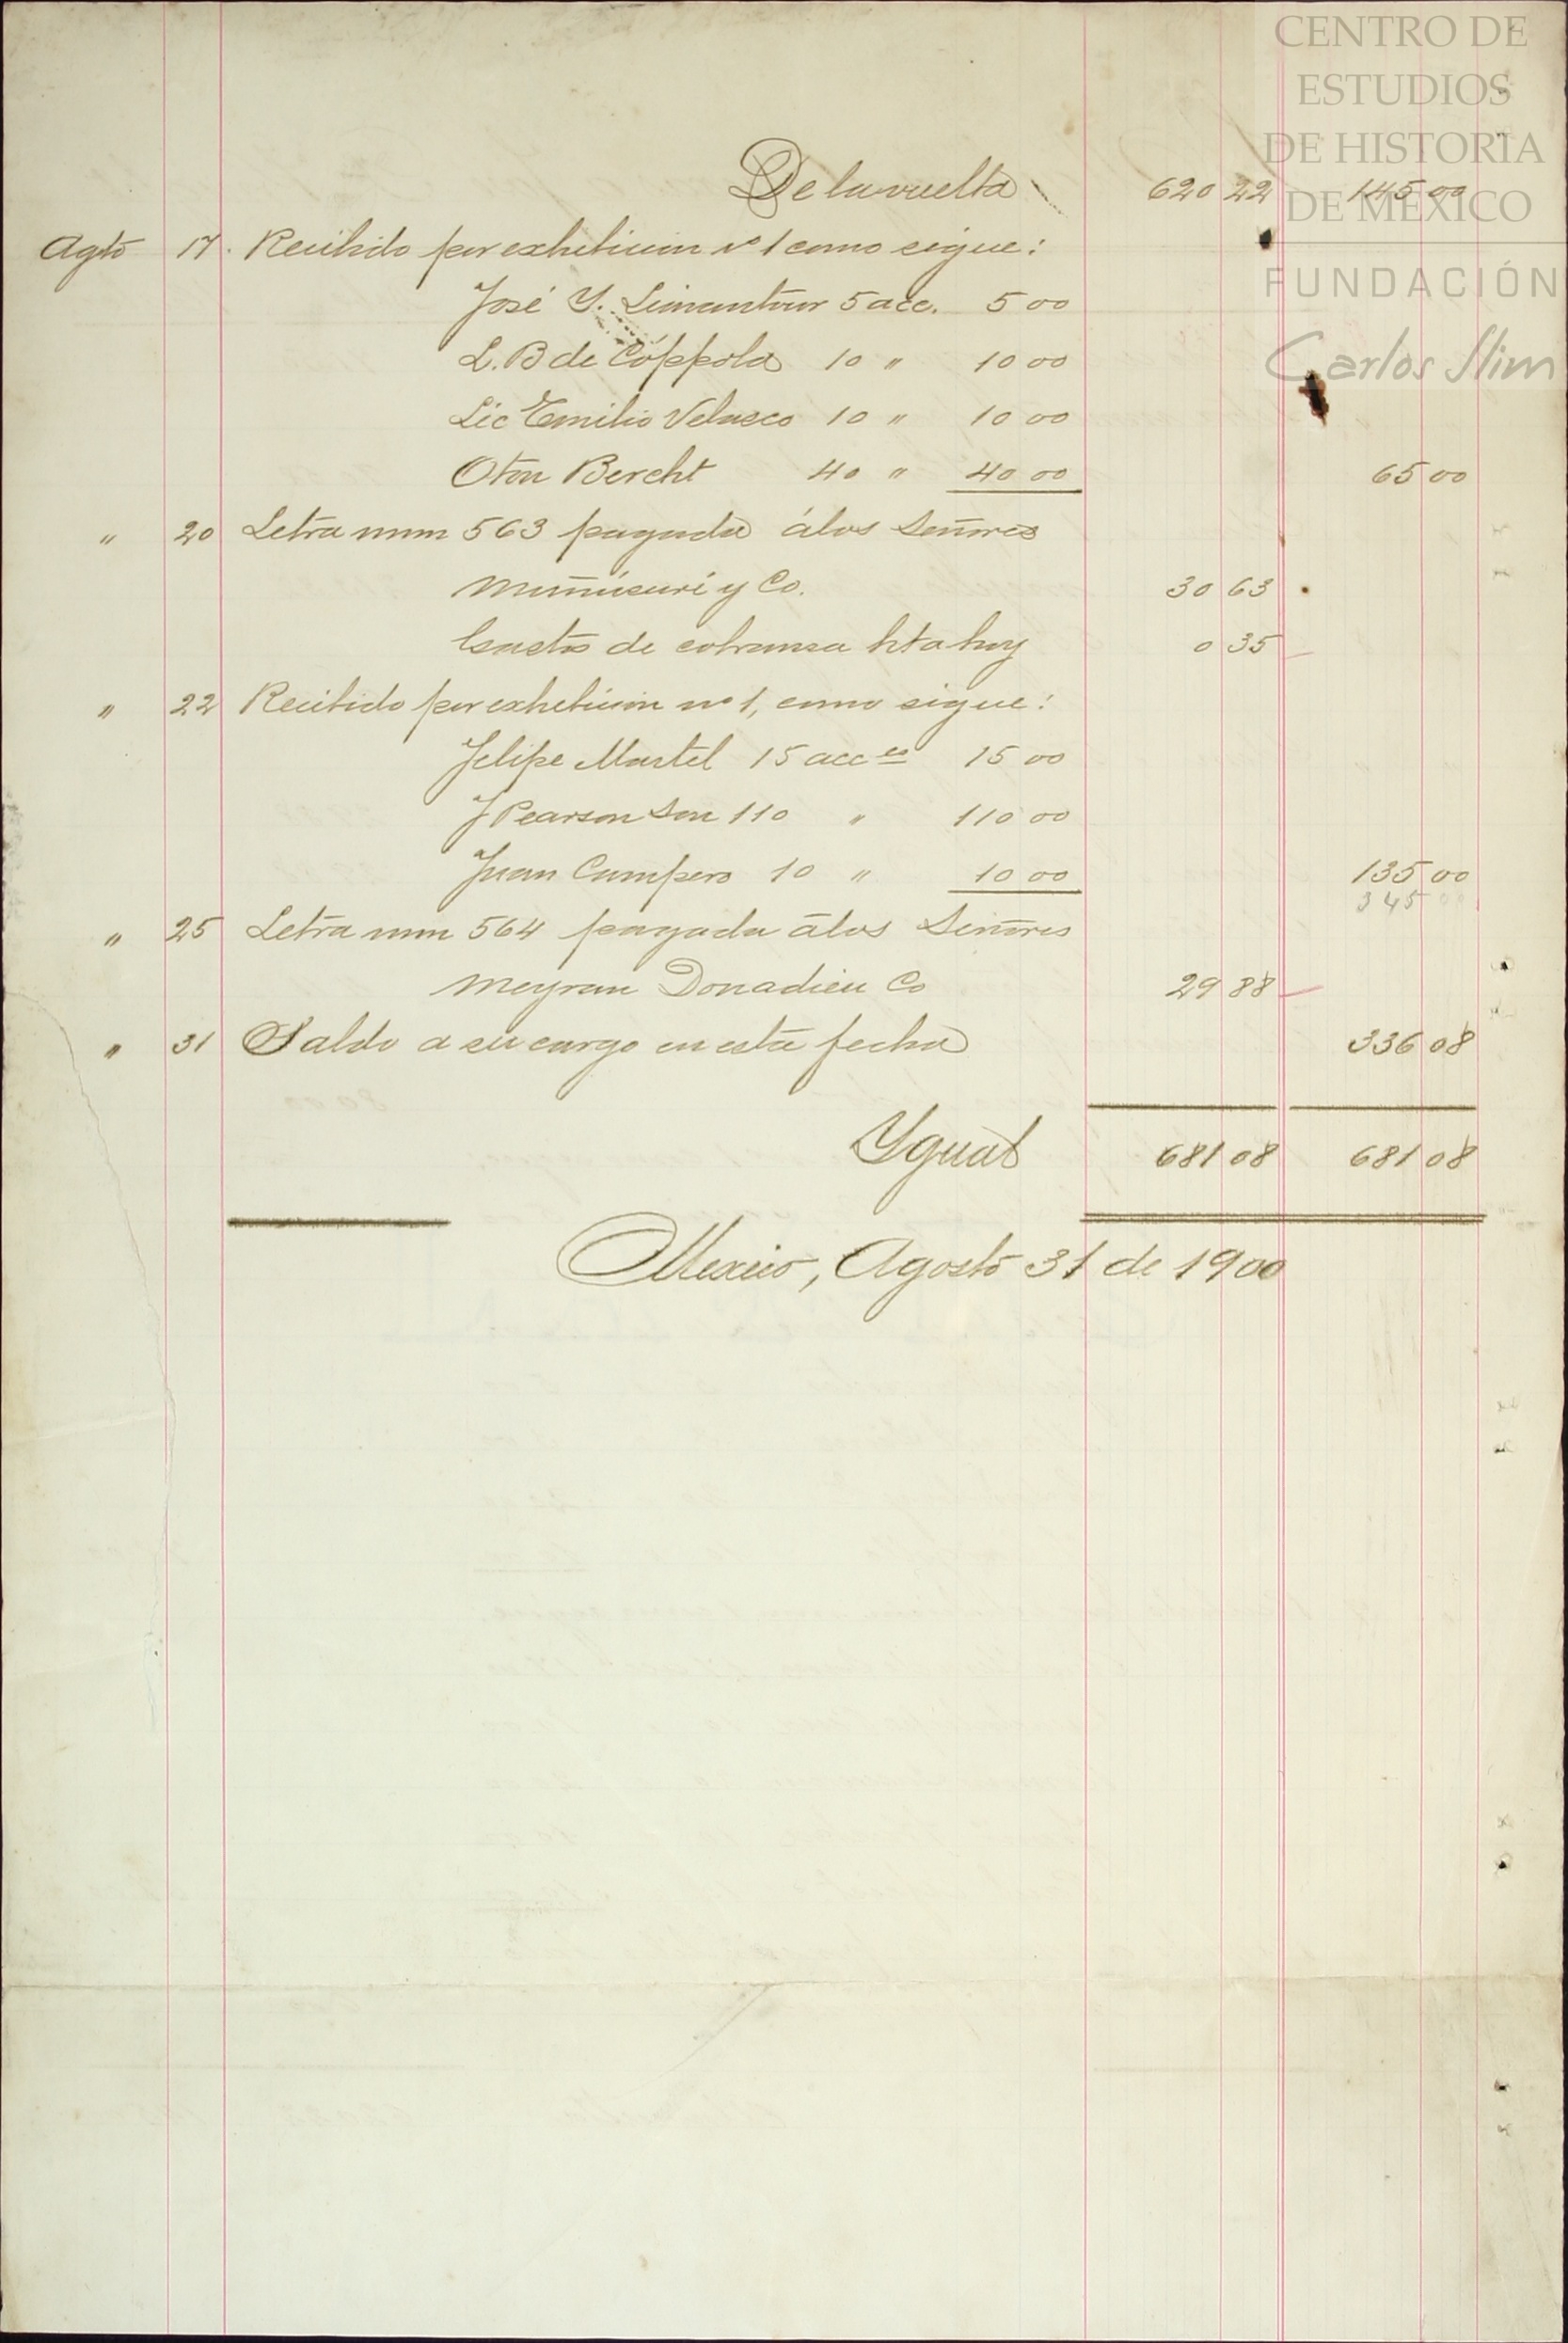 CENTRO DE
ESTUDIOS
DE HISTORIA
DE MÉXICO
FUNDACIÓN
Carlos Slim
De la vuelta 620 22 145 00
Agto 17. Recibido por exhibicion no 1 como sigue:
José Y. Limantour 5 acc. 5 00
L. B de Cóppola 10 " 10 00
Lic Emilio Velasco 10 " 10 00
Oton Bercht 40 " 40 00 65 00
" 20 Letra num 563 pagada á los Señores
Muñúzuri y Co. 30 63
Gastos de cobranza hta hoy 0 35
" 22 Recibido por exhibicion no 1, como sigue:
Felipe Martel 15 acc es 15 00
J Pearson Son 110 " 110 00
Juan Campero 10 " 10 00 135 00
345 00
" 25 Letra num 564 pagada á los Señores
Meyran Donadieu Co 29 88
" 31 Saldo a su cargo en esta fecha 336 08
Ygual 681 08 681 08
Mexico, Agosto 31 de 1900